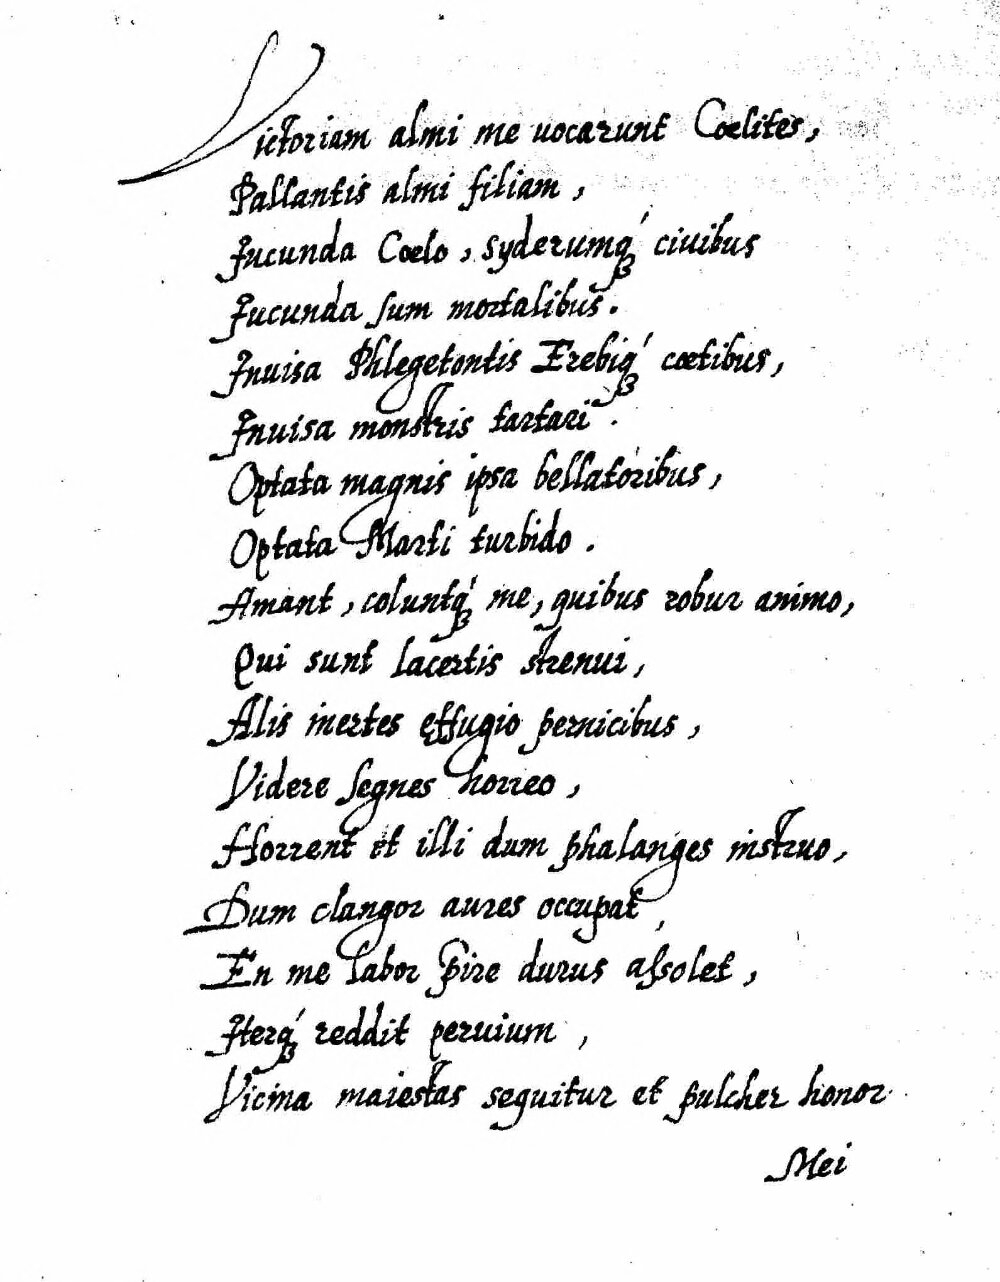 Victoriam almi me uocarunt Coelites,
Pallantis almi filiam,
Jucunda Coelo, syderumq́ꝫ ciuibus
Jucunda sum mortalibus.
Inuisa Phlegetontis Erebiq́ꝫ coetibus,
Inuisa monstris tartari.
Optata magnis ipsa bellatoribus,
Optata Marti turbido.
Amant, coluntq́ꝫ me, quibus robur animo,
Qui sunt lacertis strenui,
Alis inertes effugio pernicibus,
Videre segnes horreo,
Horrent et illi dum phalanges instruo,
Dum clangor aures occupat,
En me labor p̃ire durus assolet,
Iterq́ꝫ reddit peruium,
Vicina maiestas sequitur et pulcher honor.
Mei